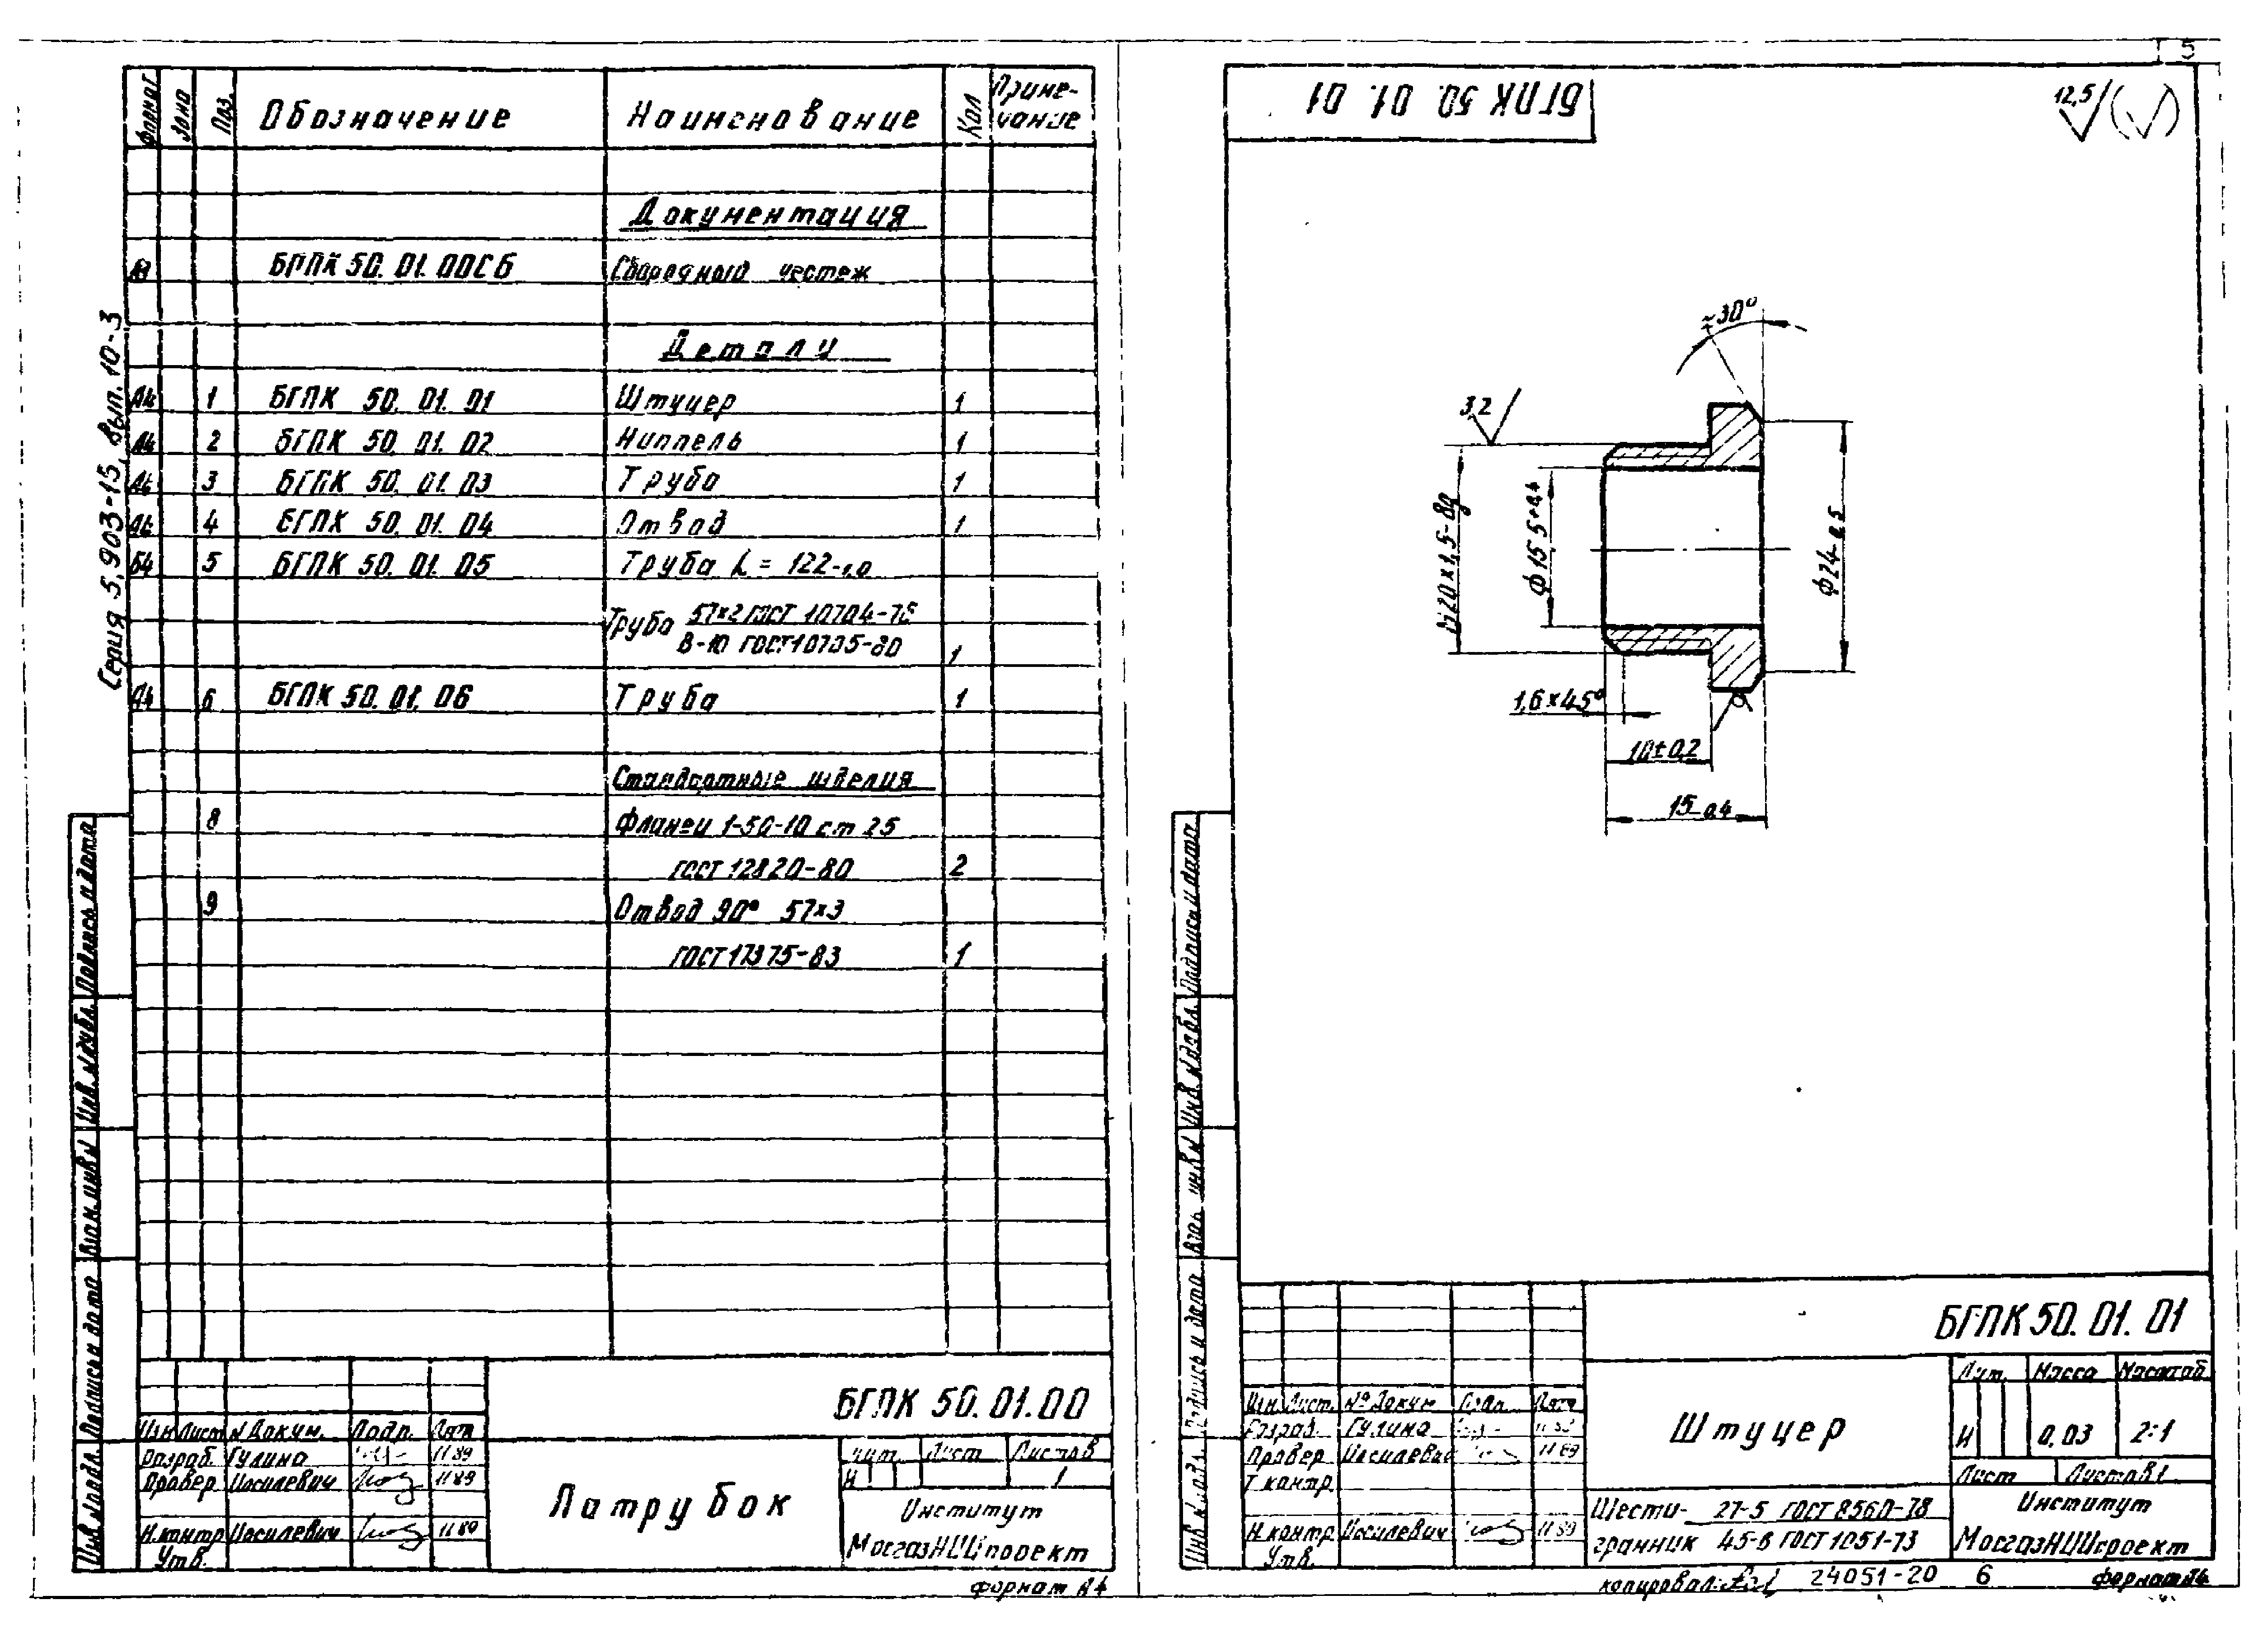 5
Серия 5.903-15, вып. 10-3
Формат Зона Поз. Обозначение Наименование Кол Приме-
чание
Документация
БГПК 50. 01. 00СБ Сборочный чертеж
Детали
А4 1 БГПК 50. 01. 01 Штуцер 1
А4 2 БГПК 50. 01. 02 Ниппель 1
А4 3 БГПК 50. 01. 03 Труба 1
А4 4 БГПК 50. 01. 04 Отвод 1
Б4 5 БГПК 50. 01. 05 Труба L = 122-1,0
Труба 57×2 ГОСТ 10704-76
В-10 ГОСТ 10705-80 1
А4 6 БГПК 50. 01. 06 Труба 1
Стандартные изделия
8 Фланец 1-50-10 ст 25
ГОСТ 12820-80 2
9 Отвод 90° 57×3
ГОСТ 17375-83 1
Инв. № подл. Подпись и дата Взам. инв № Инв. № дубл. Подпись и дата
БГПК 50. 01. 00
Изм Лист № Докум. Подп. Дата
Разраб. Гулина 11 89
Провер Иосилевич 11 89
Н.контр Иосилевич 11 89
Утв.
Патрубок
Лит. Лист Листов
И 1
Институт
МосгазНИИпроект
формат А4
БГПК 50. 01. 01
12,5
≈30°
3,2
М20×1,5-8g
ф15,5+0,4
ф24-0,5
1,6×45°
10±0,2
15-0,4
Инв. № подл. Подпись и дата Взам инв № Инв. № дубл. Подпись и дата
БГПК 50. 01. 01
Изм Лист. № Докум Подп. Дата
Разраб. Гулина 11 89
Провер Иосилевич 11 89
Т контр.
Н.контр Иосилевич 11 89
Утв.
Штуцер
Лит. Масса Масштаб
И 0,03 2:1
Лист Листов 1
Шести- 27-5 ГОСТ 8560-78
гранник 45-в ГОСТ 1051-73
Институт
МосгазНИИпроект
копировал: 24051-20 6 формат А4